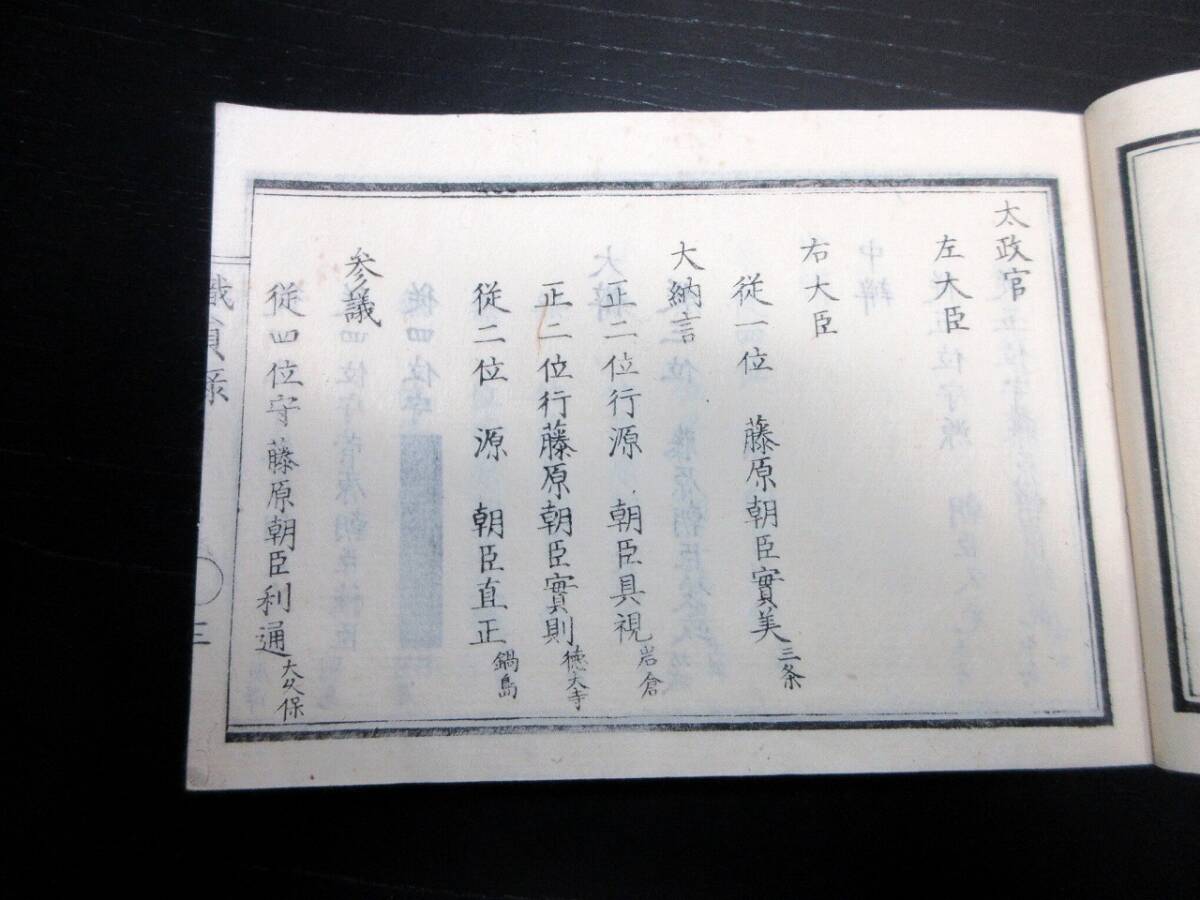 太政官
左大臣
右大臣
從一位 藤原朝臣實美 三条
大納言
正二位行源 朝臣具視 岩倉
正二位行藤原朝臣實則 徳大寺
從二位 源 朝臣直正 鍋島
参議
從四位守藤原朝臣利通 大久保
職員録
三